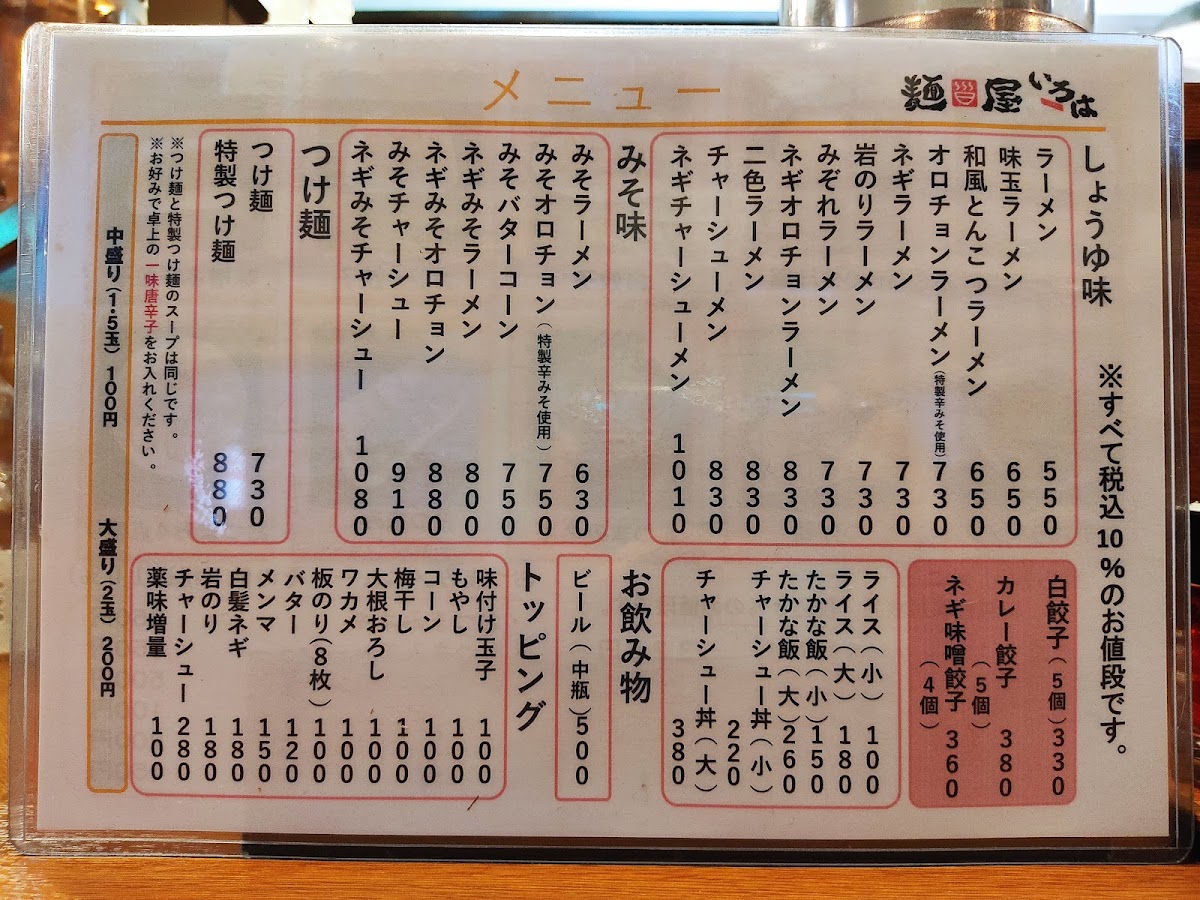 メニュー
麺屋いろは
しょうゆ味
※すべて税込10%のお値段です。
ラーメン 550
味玉ラーメン 650
和風とんこつラーメン 650
オロチョンラーメン(特製辛みそ使用) 730
ネギラーメン 730
岩のりラーメン 730
みぞれラーメン 730
ネギオロチョンラーメン 830
二色ラーメン 830
チャーシューメン 830
ネギチャーシューメン 1010
みそ味
みそラーメン 630
みそオロチョン(特製辛みそ使用) 750
みそバターコーン 750
ネギみそラーメン 800
ネギみそオロチョン 880
みそチャーシュー 910
ネギみそチャーシュー 1080
つけ麺
つけ麺 730
特製つけ麺 880
※つけ麺と特製つけ麺のスープは同じです。
※お好みで卓上の一味唐辛子をお入れください。
中盛り(1.5玉) 100円
大盛り(2玉) 200円
白餃子(5個) 330
カレー餃子(5個) 380
ネギ味噌餃子(4個) 360
ライス(小) 100
ライス(大) 180
たかな飯(小) 150
たかな飯(大) 260
チャーシュー丼(小) 220
チャーシュー丼(大) 380
お飲み物
ビール(中瓶) 500
トッピング
味付け玉子 100
もやし 100
コーン 100
梅干し 100
大根おろし 100
ワカメ 100
板のり(8枚) 100
バター 120
メンマ 150
白髪ネギ 180
岩のり 180
チャーシュー 280
薬味増量 100